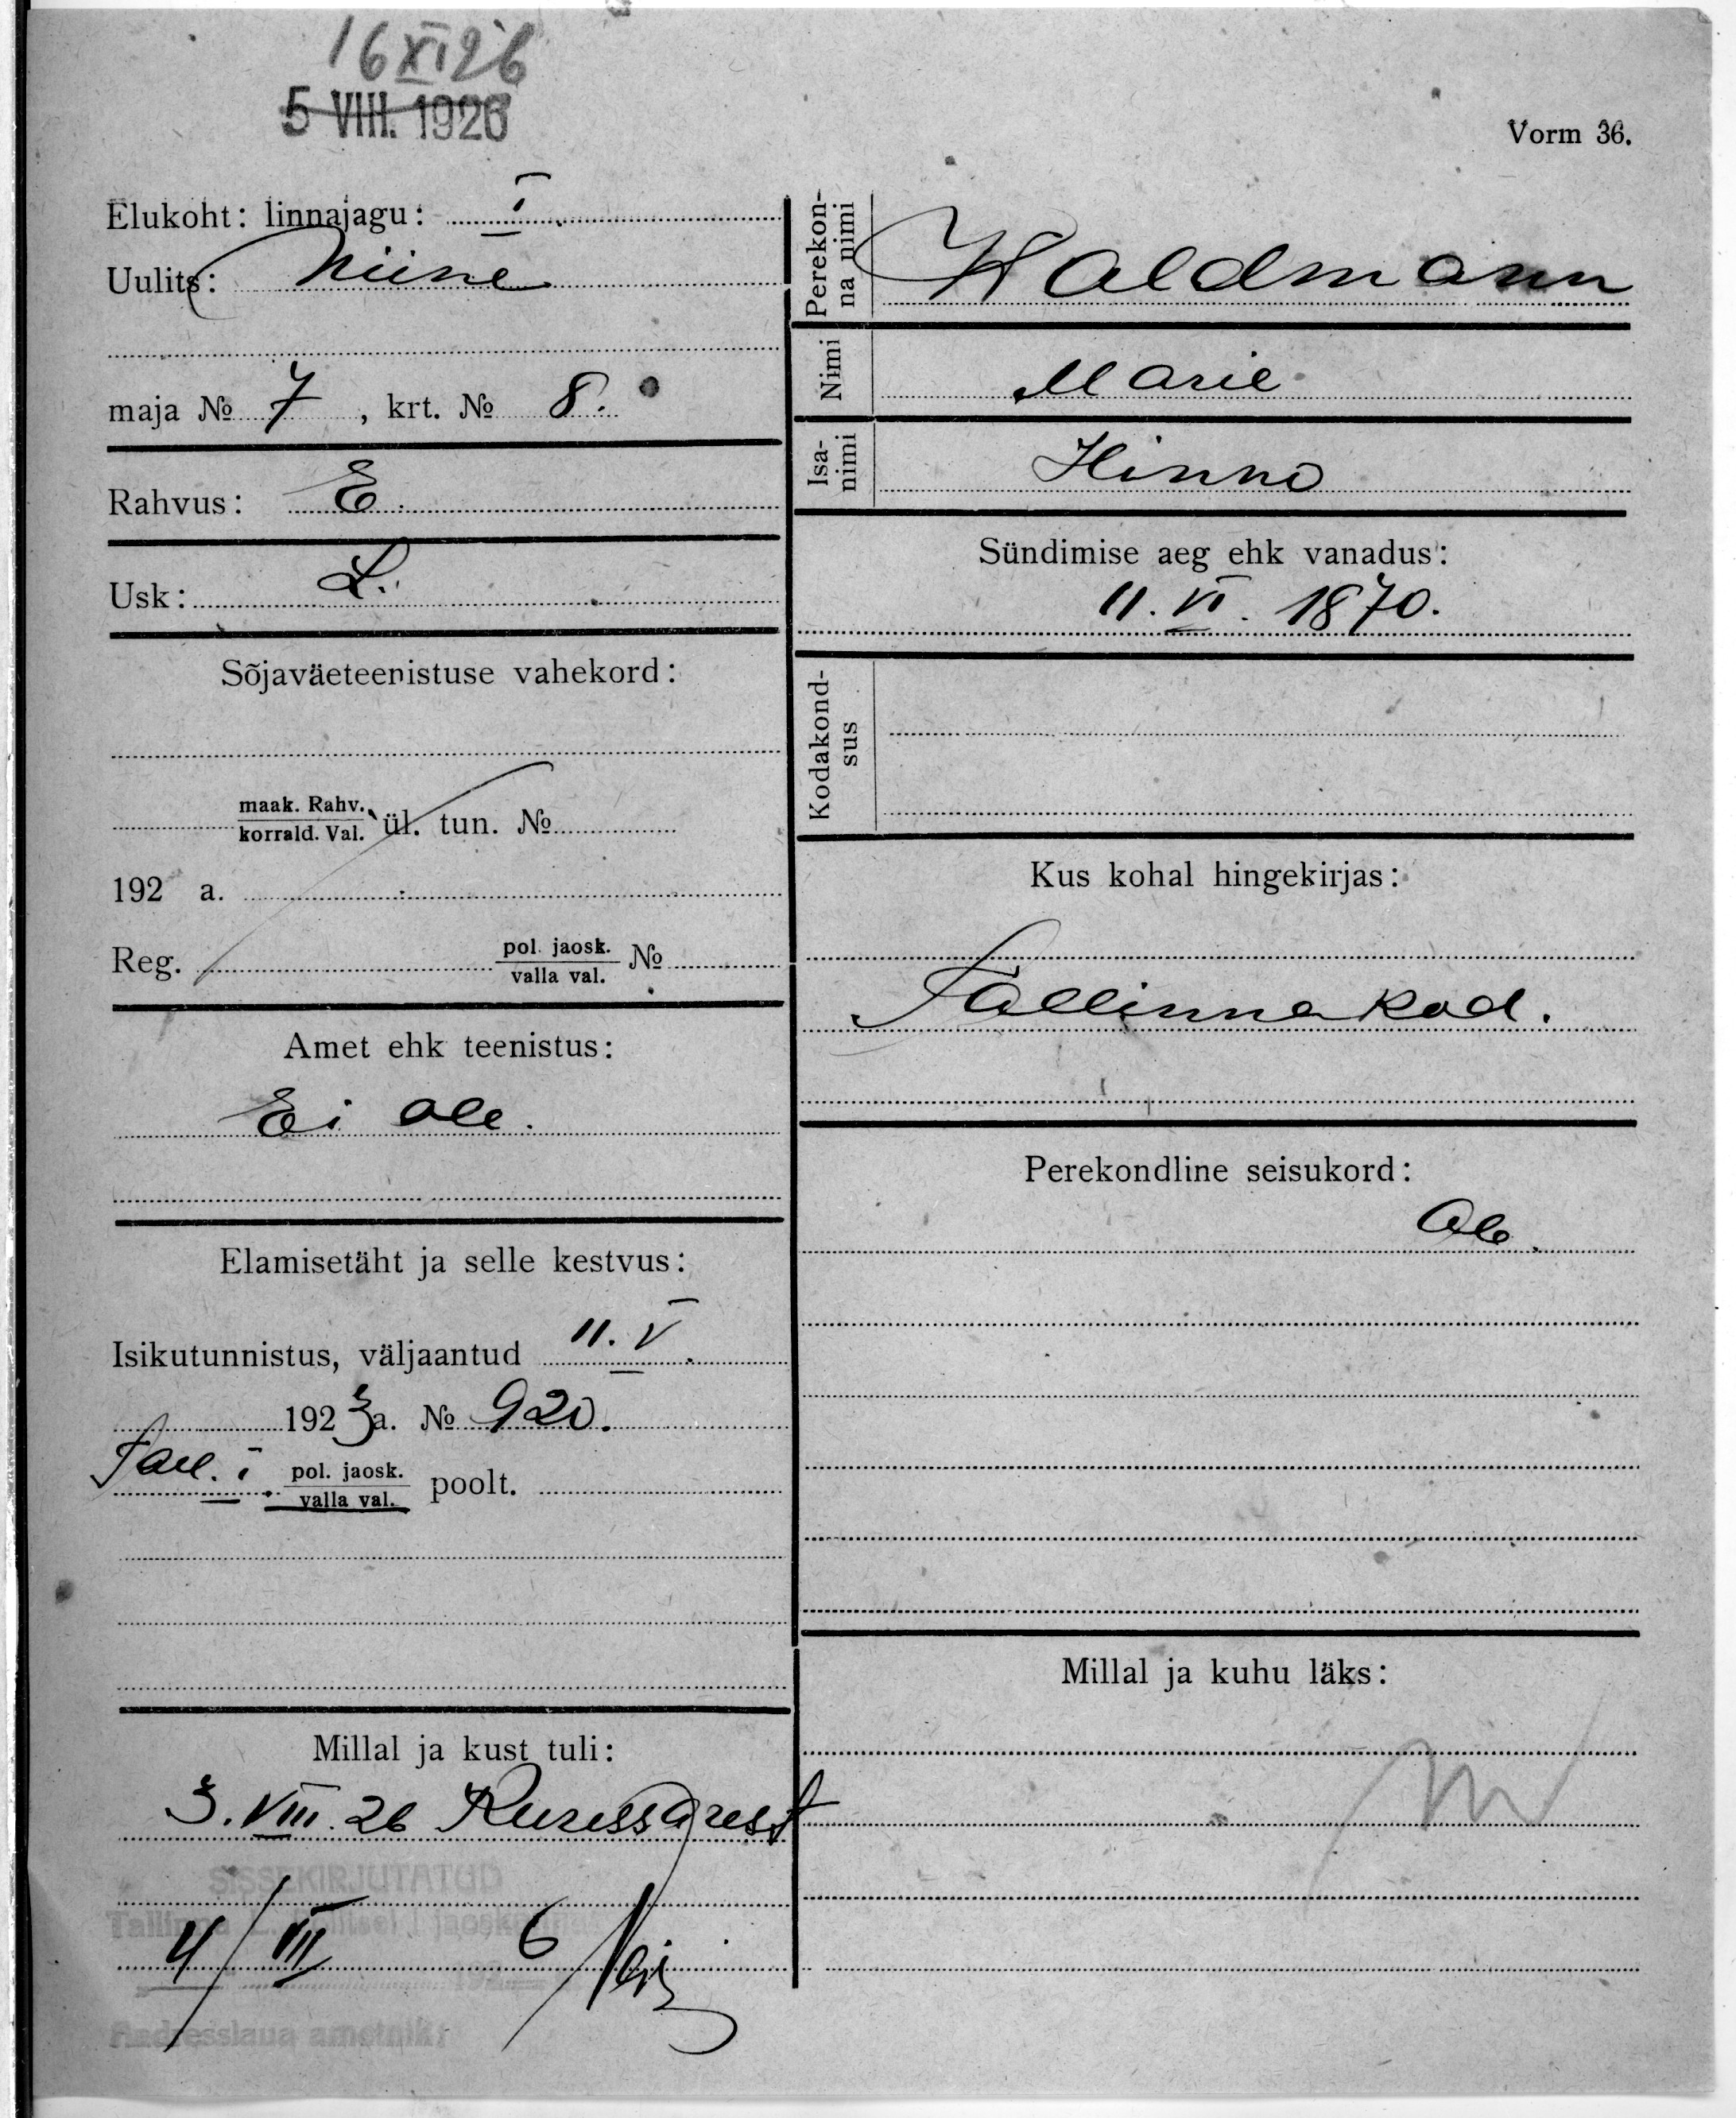 16 XI 26
5 VIII. 1926
Vorm 36.
Elukoht: linnajagu: I.
Uulits: Niine
maja № 7, krt. № 8.
Rahvus: E.
Usk: L.
Sõjaväeteenistuse vahekord:
maak. Rahv.
korrald. Val. ül. tun. №
192 a.
Reg. pol. jaosk.
valla val. №
Amet ehk teenistus:
Ei ole.
Elamisetäht ja selle kestvus:
Isikutunnistus, väljaantud 11. V.
1923 a. № 920.
Tall. I. pol. jaosk.
valla val. poolt.
Millal ja kust tuli:
3. VIII. 26 Kuressarest
SISSEKIRJUTATUD
Tallinna L. Politsei I jaoskonnas
4/VIII 192 6
Aadresslaua ametnik:
Perekon-
na nimi Waldmann
Nimi Marie
Isa-
nimi Hinno
Sündimise aeg ehk vanadus:
11. VI. 1870.
Kodakond-
sus
Kus kohal hingekirjas:
Tallinna kod.
Perekondline seisukord:
Millal ja kuhu läks: